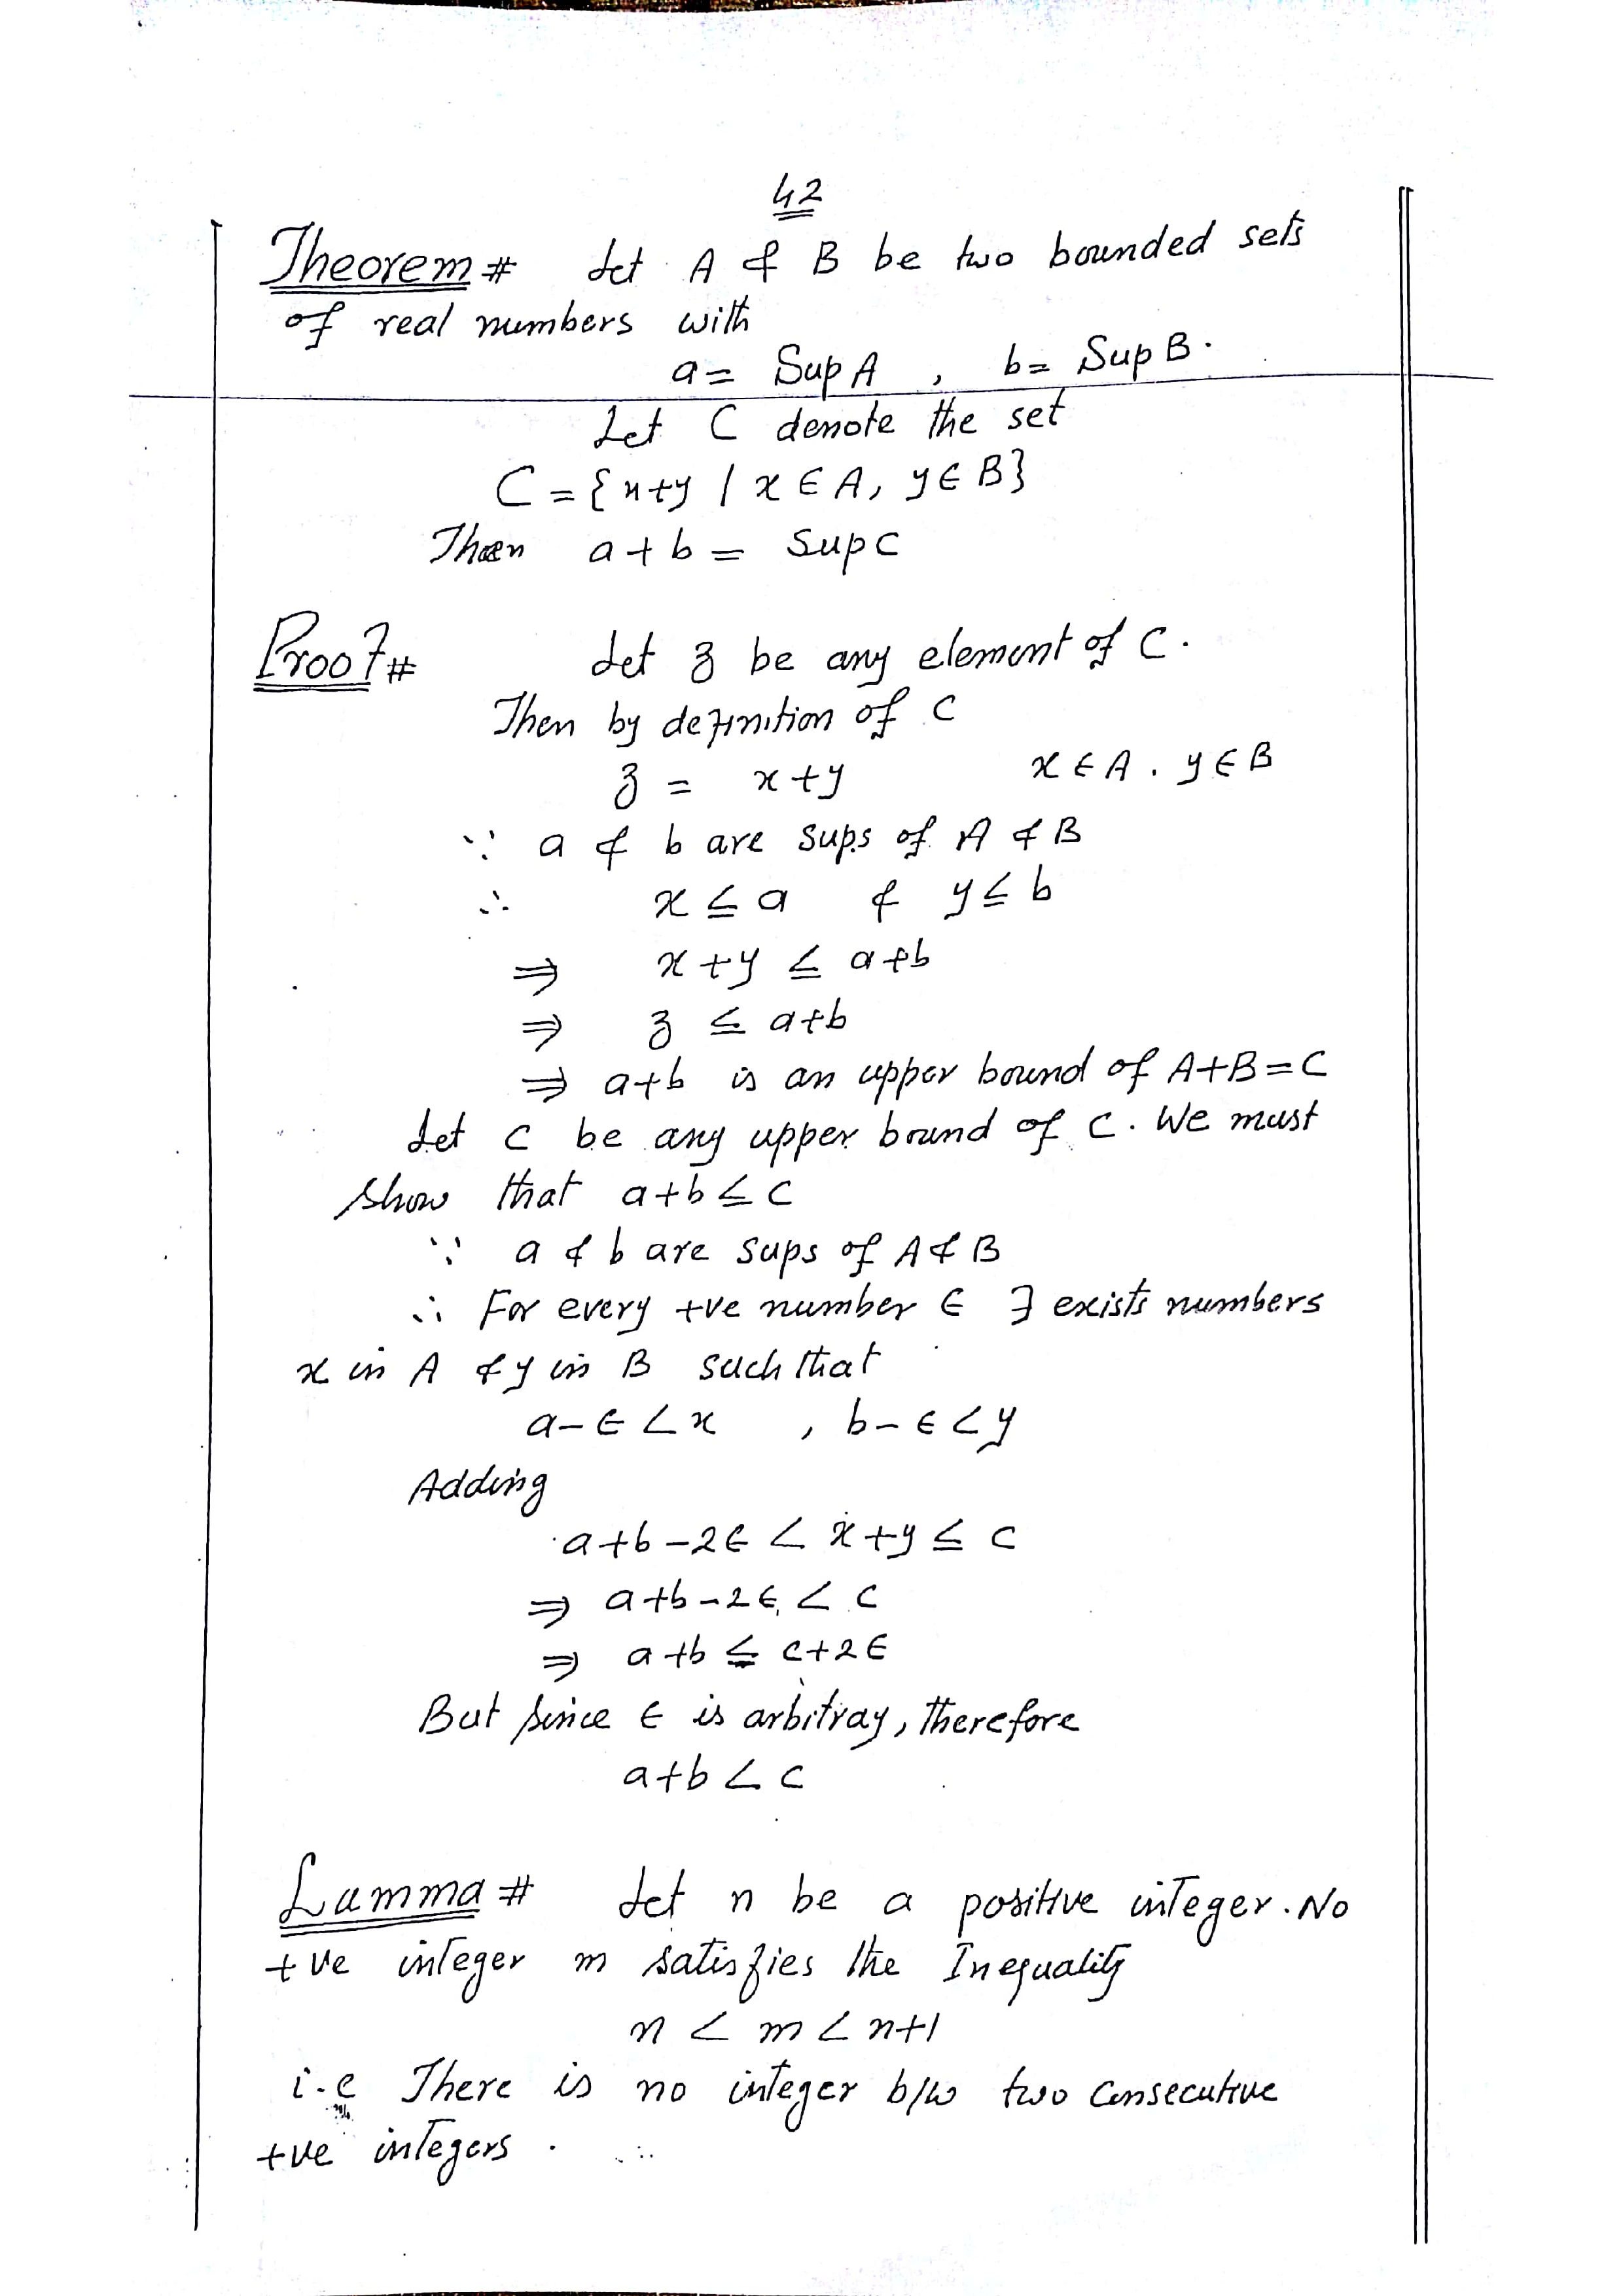 42
Theorem# Let A & B be two bounded sets
of real numbers with
a = Sup A , b = Sup B.
Let C denote the set
C = {x+y / x ∈ A, y ∈ B}
Then a + b = Sup C
Proof# Let z be any element of C.
Then by definition of C
z = x+y x ∈ A, y ∈ B
∵ a & b are sups of A & B
∴ x ≤ a & y ≤ b
⇒ x+y ≤ a+b
⇒ z ≤ a+b
⇒ a+b is an upper bound of A+B=C
Let c be any upper bound of C. We must
show that a+b ≤ c
∵ a & b are sups of A & B
∴ For every +ve number ∈ ∃ exists numbers
x in A & y in B such that
a-∈ < x , b-∈ < y
Adding
a+b-2∈ < x+y ≤ c
⇒ a+b-2∈ < c
⇒ a+b ≤ c+2∈
But since ∈ is arbitray, therefore
a+b < c
Lamma# Let n be a positive integer. No
+ve integer m satisfies the Inequality
n < m < n+1
i.e There is no integer b/w two Consecutive
+ve integers.